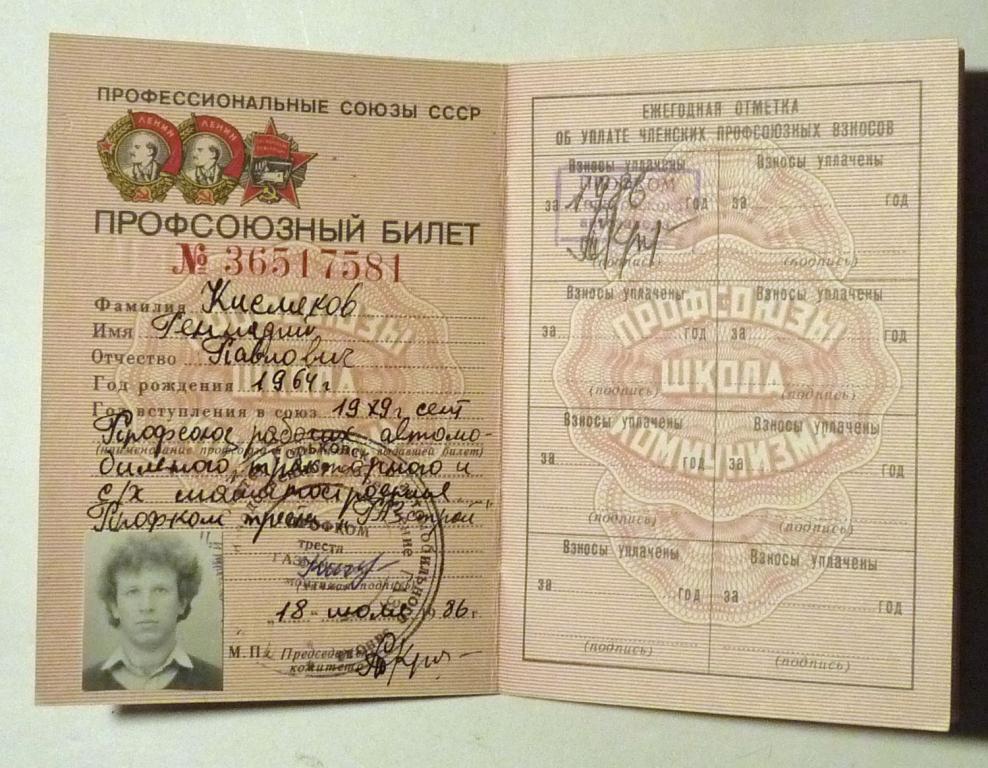 ПРОФЕССИОНАЛЬНЫЕ СОЮЗЫ СССР
ЛЕНИН ЛЕНИН
ПРОФСОЮЗНЫЙ БИЛЕТ
№ 36517581
Фамилия Кисляков
Имя Геннадий
Отчество Павлович
Год рождения 1964 г
Год вступления в союз 1979 г. сент
Профсоюз рабочих автомо-
(наименование профсоюза и выдавшей билет)
бильного, тракторного и
с/х машиностроения
Профком треста "ГАЗстрой"
ПРОФКОМ
треста
(личная подпись)
"18" июля 1986 г.
М.П. Председатель
комитета
ЕЖЕГОДНАЯ ОТМЕТКА
ОБ УПЛАТЕ ЧЛЕНСКИХ ПРОФСОЮЗНЫХ ВЗНОСОВ
Взносы уплачены Взносы уплачены
ПРОФКОМ
за 1986 год за год
(подпись) (подпись)
Взносы уплачены Взносы уплачены
за год за год
(подпись) (подпись)
Взносы уплачены Взносы уплачены
за год за год
(подпись) (подпись)
Взносы уплачены Взносы уплачены
за год за год
(подпись) (подпись)
ПРОФСОЮЗЫ
ШКОЛА
КОММУНИЗМА